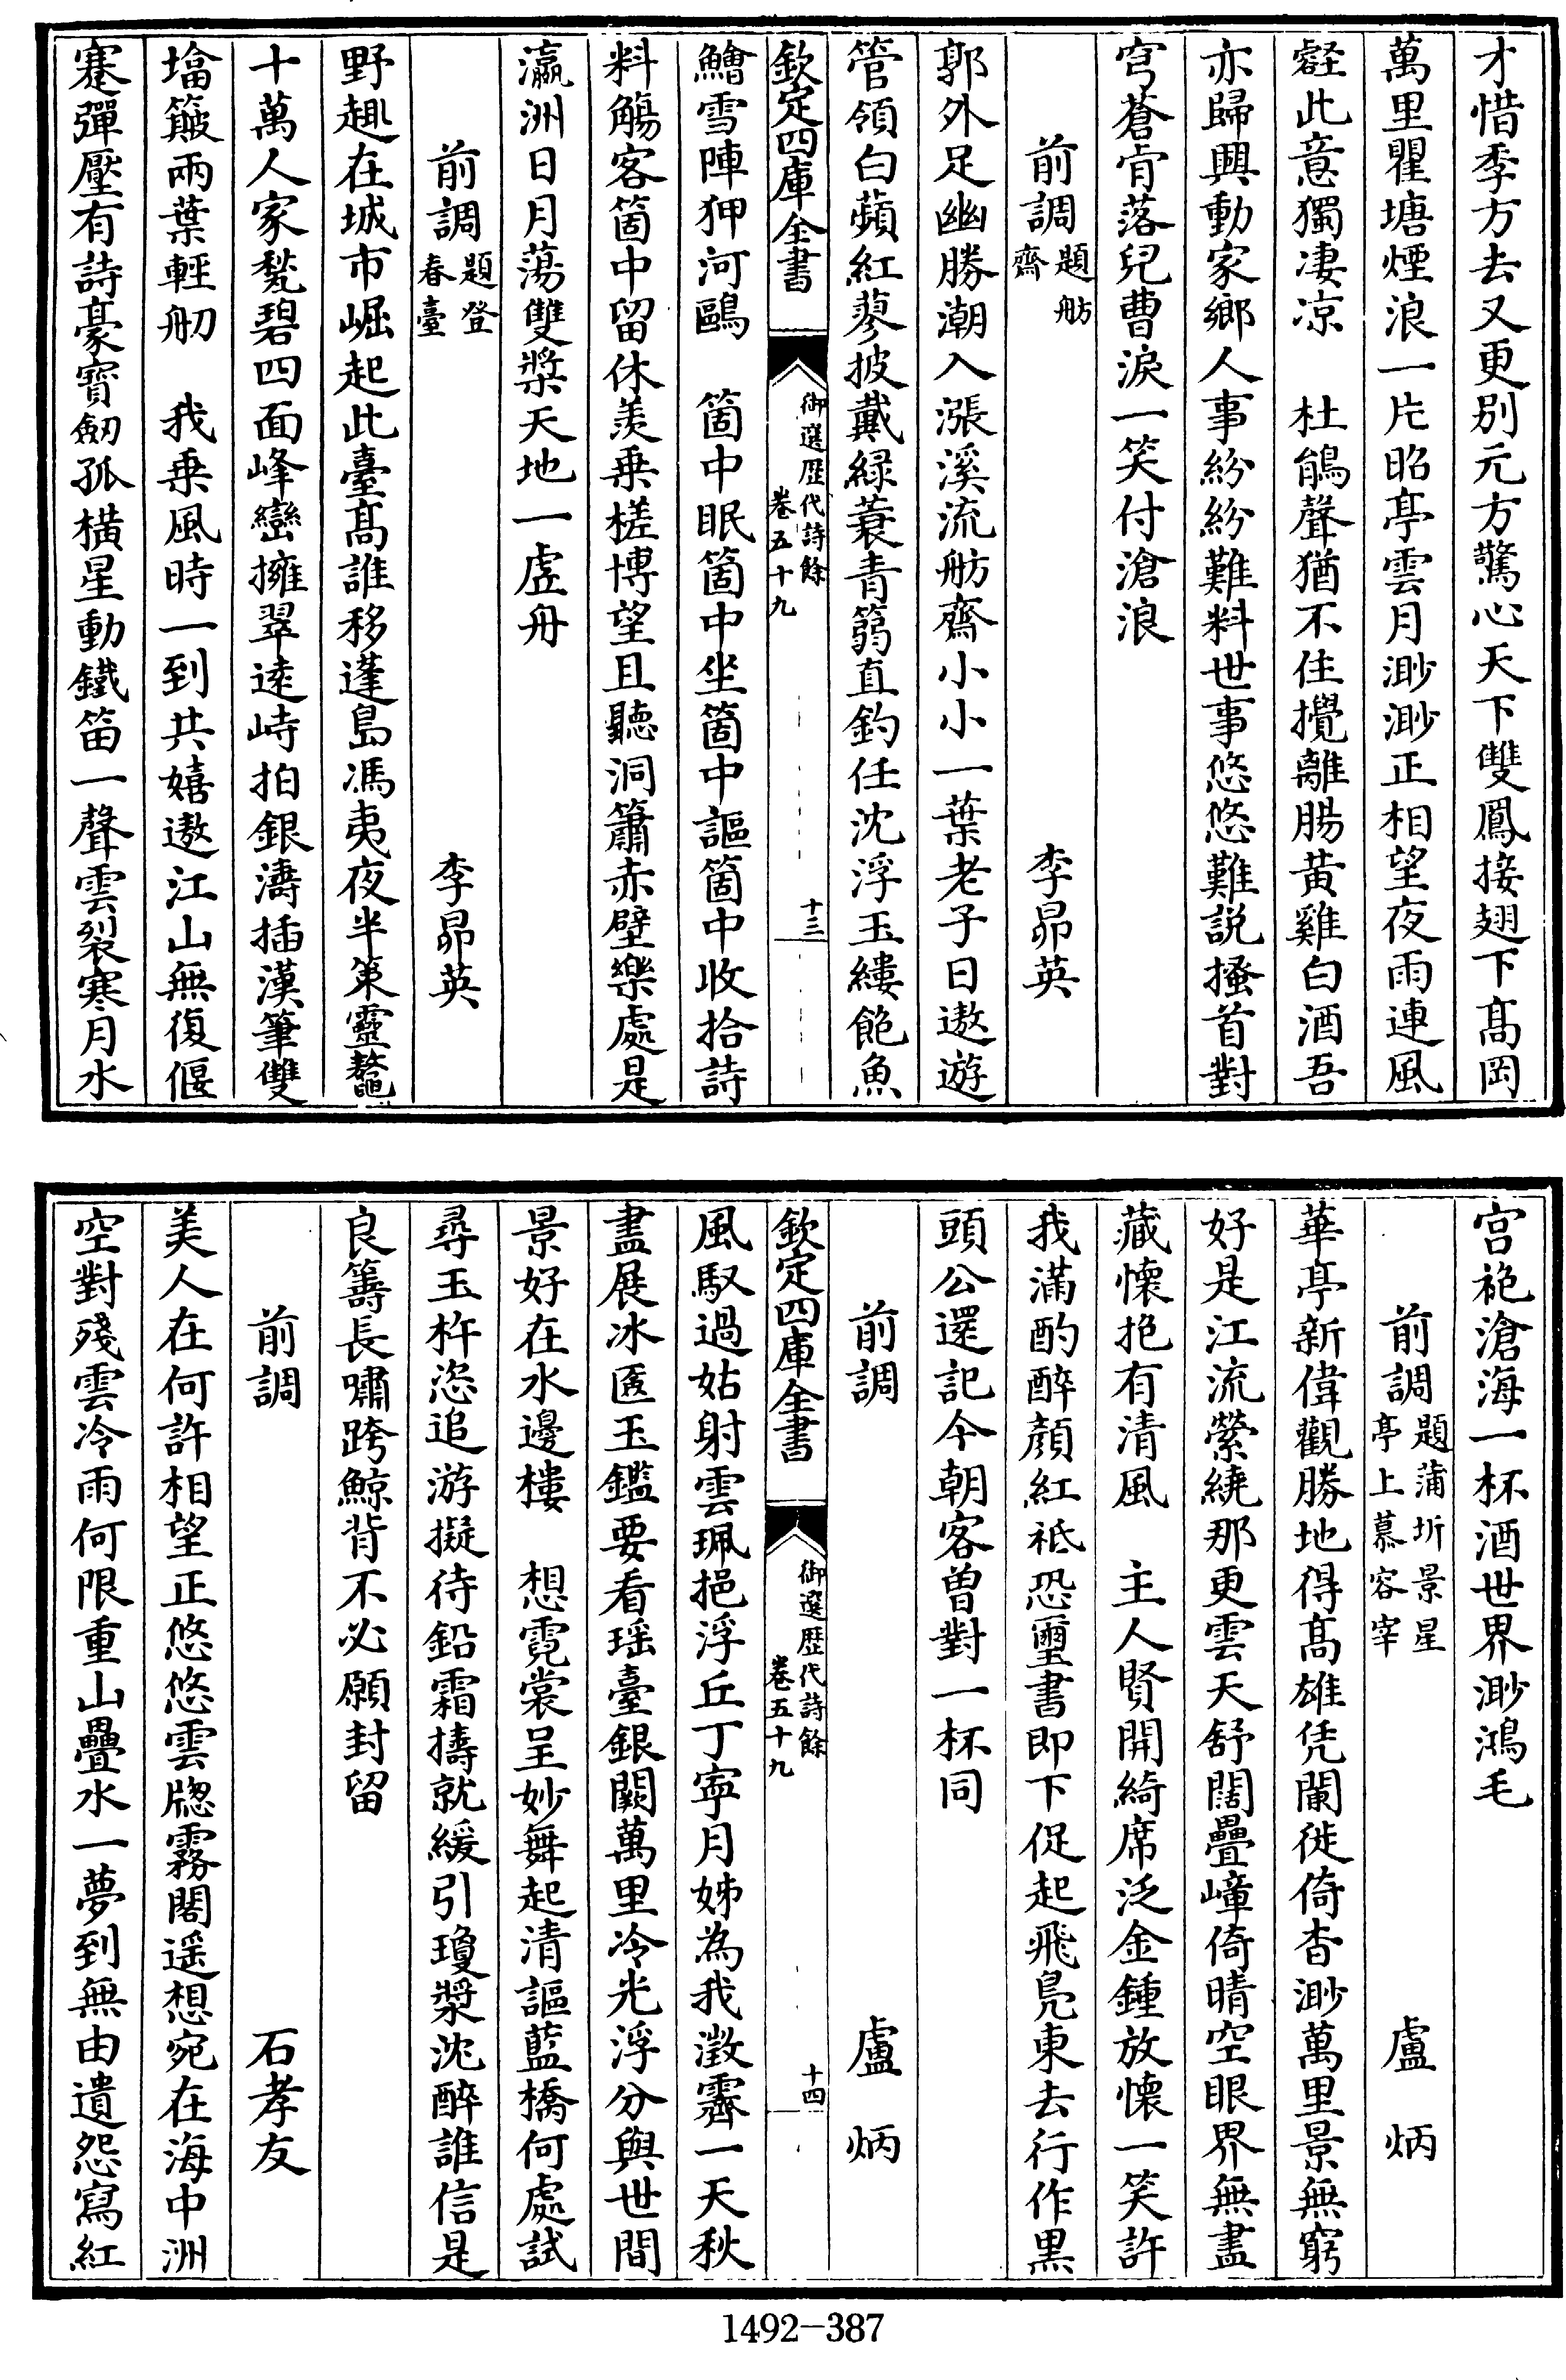 才惜季方去又更别元方驚心天下雙鳳接翅下髙岡
萬里瞿塘煙浪一片昭亭雲月渺渺正相望夜雨連風
壑此意獨凄凉　杜鵑聲猶不住攪離腸黄雞白酒吾
亦歸興動家鄉人事紛紛難料世事悠悠難説搔首對
穹蒼肯落兒曹淚一笑付滄浪
前調題舫齋　李昴英
郭外足幽勝潮入漲溪流舫齋小小一葉老子日遨遊
管領白蘋紅蓼披戴緑蓑青篛直釣任沈浮玉縷飽魚
欽定四庫全書　御選歴代詩餘　卷五十九　十三
鱠雪陣狎河鷗　箇中眠箇中坐箇中謳箇中收拾詩
料觴客箇中留休羨乗槎博望且聽洞簫赤壁樂處是
瀛洲日月蕩雙槳天地一虚舟
前調題登春臺　李昴英
野趣在城市崛起此臺髙誰移蓬島馮夷夜半策靈鼇
十萬人家甃碧四面峰巒擁翠逺峙拍銀濤插漢筆雙
㙮簸兩葉輕舠　我乗風時一到共嬉遨江山無復偃
蹇彈壓有詩豪寳劒孤横星動鐵笛一聲雲裂寒月水
宫袍滄海一杯酒世界渺鴻毛
前調題蒲圻景星亭上慕容宰　盧炳
華亭新偉觀勝地得髙雄凭闌徙倚杳渺萬里景無窮
好是江流縈繞那更雲天舒闊疊嶂倚晴空眼界無盡
藏懷抱有清風　主人賢開綺席泛金鍾放懷一笑許
我滿酌醉顔紅祗恐璽書即下促起飛凫東去行作黒
頭公還記今朝客曽對一杯同
前調　盧炳
欽定四庫全書　御選歴代詩餘　卷五十九　十四
風馭過姑射雲珮挹浮丘丁寧月姊為我澂霽一天秋
盡展冰匲玉鑑要看瑶臺銀闕萬里冷光浮分與世間
景好在水邊樓　想霓裳呈妙舞起清謳藍橋何處試
尋玉杵恣追游擬待鉛霜擣就緩引瓊漿沈醉誰信是
良籌長嘯跨鯨背不必願封留
前調　石孝友
美人在何許相望正悠悠雲牕霧閣遥想宛在海中洲
空對殘雲冷雨何限重山疊水一夢到無由遺怨寫紅
1492-387